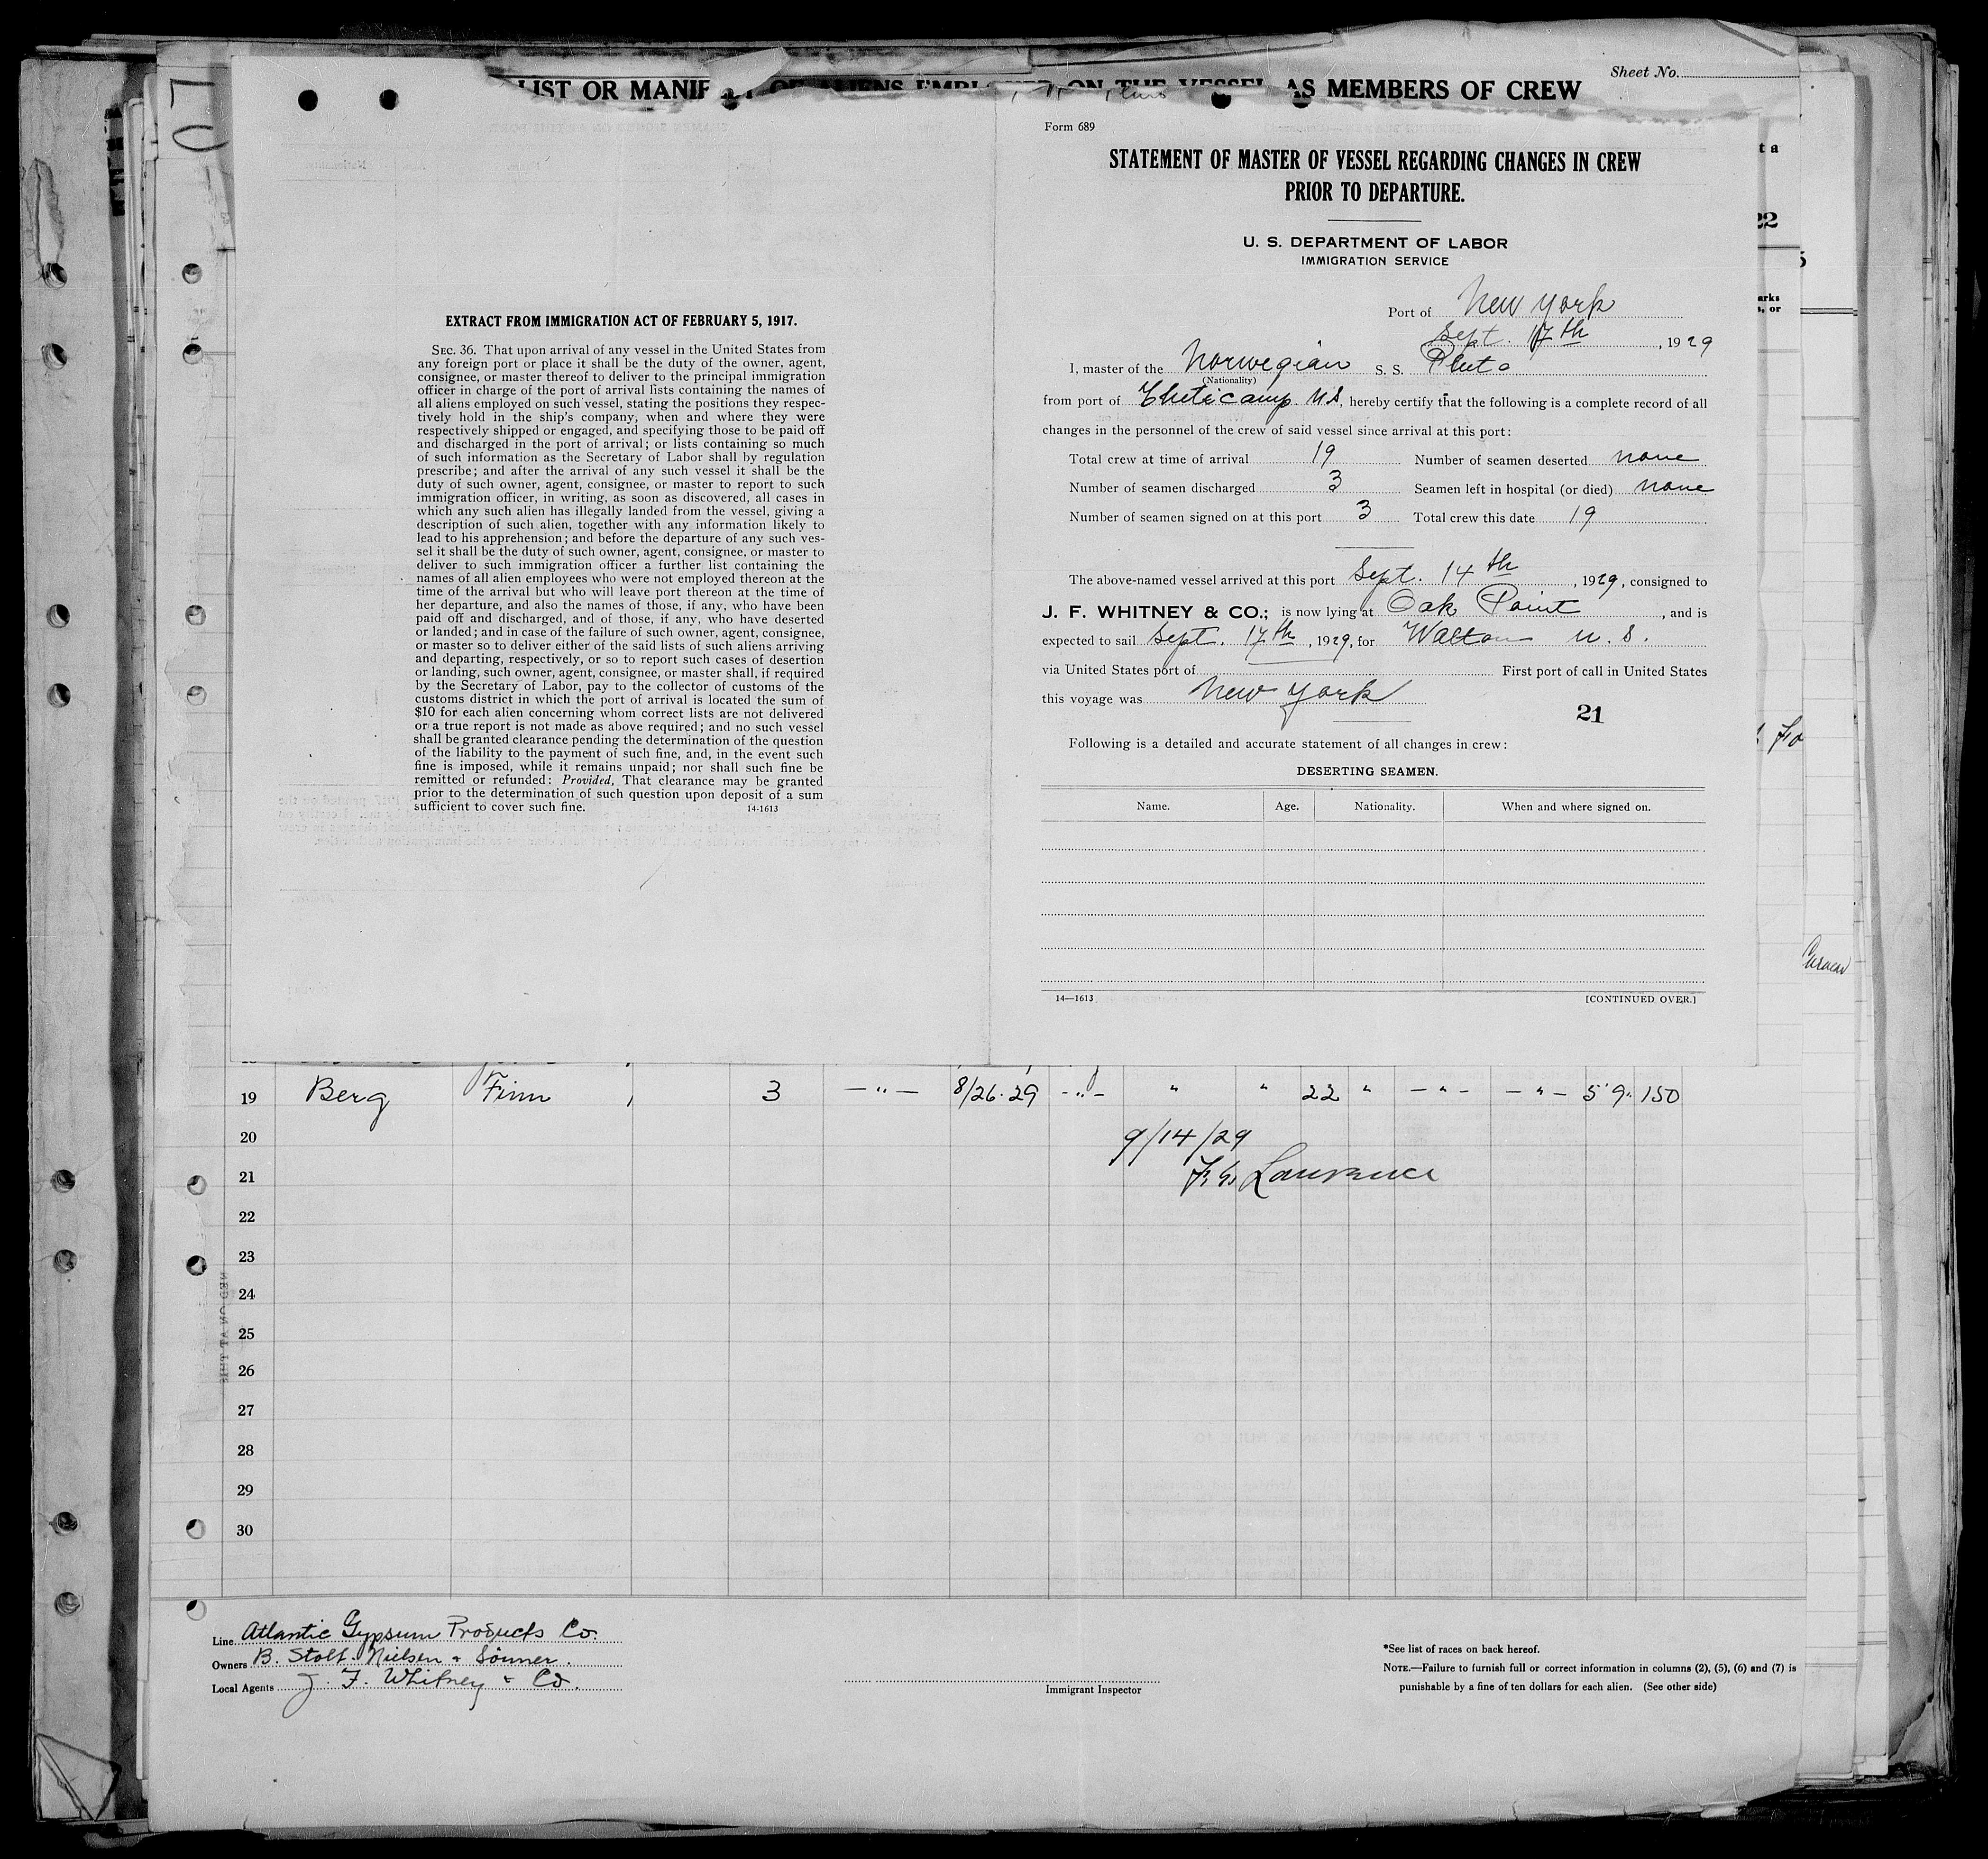 LIST OR MANIF OF ALIENS EMPL ON THE VESSEL AS MEMBERS OF CREW
Sheet No.
EXTRACT FROM IMMIGRATION ACT OF FEBRUARY 5, 1917.
SEC. 36. That upon arrival of any vessel in the United States from
any foreign port or place it shall be the duty of the owner, agent,
consignee, or master thereof to deliver to the principal immigration
officer in charge of the port of arrival lists containing the names of
all aliens employed on such vessel, stating the positions they respec-
tively hold in the ship's company, when and where they were
respectively shipped or engaged, and specifying those to be paid off
and discharged in the port of arrival; or lists containing so much
of such information as the Secretary of Labor shall by regulation
prescribe; and after the arrival of any such vessel it shall be the
duty of such owner, agent, consignee, or master to report to such
immigration officer, in writing, as soon as discovered, all cases in
which any such alien has illegally landed from the vessel, giving a
description of such alien, together with any information likely to
lead to his apprehension; and before the departure of any such ves-
sel it shall be the duty of such owner, agent, consignee, or master to
deliver to such immigration officer a further list containing the
names of all alien employees who were not employed thereon at the
time of the arrival but who will leave port thereon at the time of
her departure, and also the names of those, if any, who have been
paid off and discharged, and of those, if any, who have deserted
or landed; and in case of the failure of such owner, agent, consignee,
or master so to deliver either of the said lists of such aliens arriving
and departing, respectively, or so to report such cases of desertion
or landing, such owner, agent, consignee, or master shall, if required
by the Secretary of Labor, pay to the collector of customs of the
customs district in which the port of arrival is located the sum of
$10 for each alien concerning whom correct lists are not delivered
or a true report is not made as above required; and no such vessel
shall be granted clearance pending the determination of the question
of the liability to the payment of such fine, and, in the event such
fine is imposed, while it remains unpaid; nor shall such fine be
remitted or refunded: Provided, That clearance may be granted
prior to the determination of such question upon deposit of a sum
sufficient to cover such fine. 14-1613
Form 689
STATEMENT OF MASTER OF VESSEL REGARDING CHANGES IN CREW
PRIOR TO DEPARTURE.
U. S. DEPARTMENT OF LABOR
IMMIGRATION SERVICE
Port of New York
Sept. 17th, 1929
I, master of the Norwegian S. S. Pluto
(Nationality)
from port of Cheticamp N.S, hereby certify that the following is a complete record of all
changes in the personnel of the crew of said vessel since arrival at this port:
Total crew at time of arrival 19 Number of seamen deserted none
Number of seamen discharged 3 Seamen left in hospital (or died) none
Number of seamen signed on at this port 3 Total crew this date 19
The above-named vessel arrived at this port Sept. 14th, 1929, consigned to
J. F. WHITNEY & CO.; is now lying at Oak Point, and is
expected to sail Sept. 17th, 1929, for Walton N. S.
via United States port of First port of call in United States
this voyage was New York
21
Following is a detailed and accurate statement of all changes in crew:
DESERTING SEAMEN.
Name. Age. Nationality. When and where signed on.
14—1613 [CONTINUED OVER.]
19 Berg Finn 3 —"— 8/26.29 -"- " " 22 " -"- -"- 5'9" 150
20 9/14/29
21 Lawrence
22
23
24
25
26
27
28
29
30
Line Atlantic Gypsum Products Co.
Owners B. Stolt-Nielsen & Sönner.
Local Agents J. F. Whitney & Co.
Immigrant Inspector
*See list of races on back hereof.
NOTE.—Failure to furnish full or correct information in columns (2), (5), (6) and (7) is
punishable by a fine of ten dollars for each alien. (See other side)